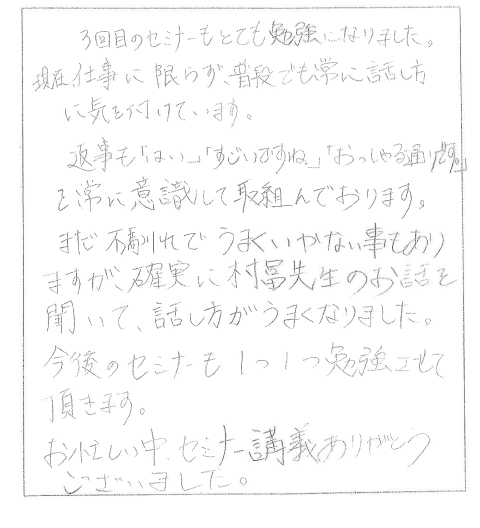 3回目のセミナーもとても勉強になりました。
現在、仕事に限らず、普段でも常に話し方
に気を付けています。
返事も「はい」「すごいですね」「おっしゃる通りです。」
を常に意識して取組んでおります。
まだ不馴れでうまくいかない事もあり
ますが、確実に村冨先生のお話を
聞いて、話し方がうまくなりました。
今後のセミナーも1つ1つ勉強させて
頂きます。
お忙しい中、セミナー講義ありがとう
ございました。